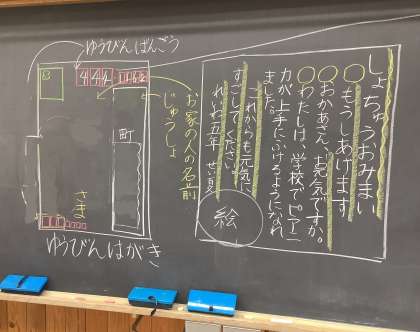 ゆうびんばんごう
444
町
さま
ゆうびんはがき
じゅうしょ
お家の人の名前
しょちゅうおみまい
もうしあげます
おかあさん、お元気ですか。
わたしは、学校でピアニ
カが上手にふけるようになれ
ました。
これからも元気に
すごしてください。
れいわ五年
絵